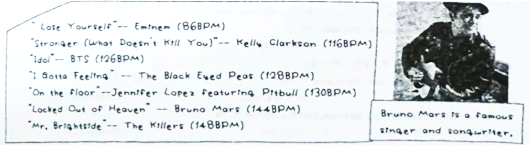 "Lose Yourself"-- Eminem (86BPM)
"Stronger (What Doesn't Kill You)"-- Kelly Clarkson (116BPM)
"Idol"-- BTS (126BPM)
"I Gotta Feeling" -- The Black Eyed Peas (128BPM)
"On the floor"--Jennifer Lopez featuring Pitbull (130BPM)
"Locked Out of Heaven" -- Bruno Mars (144BPM)
"Mr. Brightside"-- The Killers (148BPM)
Bruno Mars is a famous
singer and songwriter.